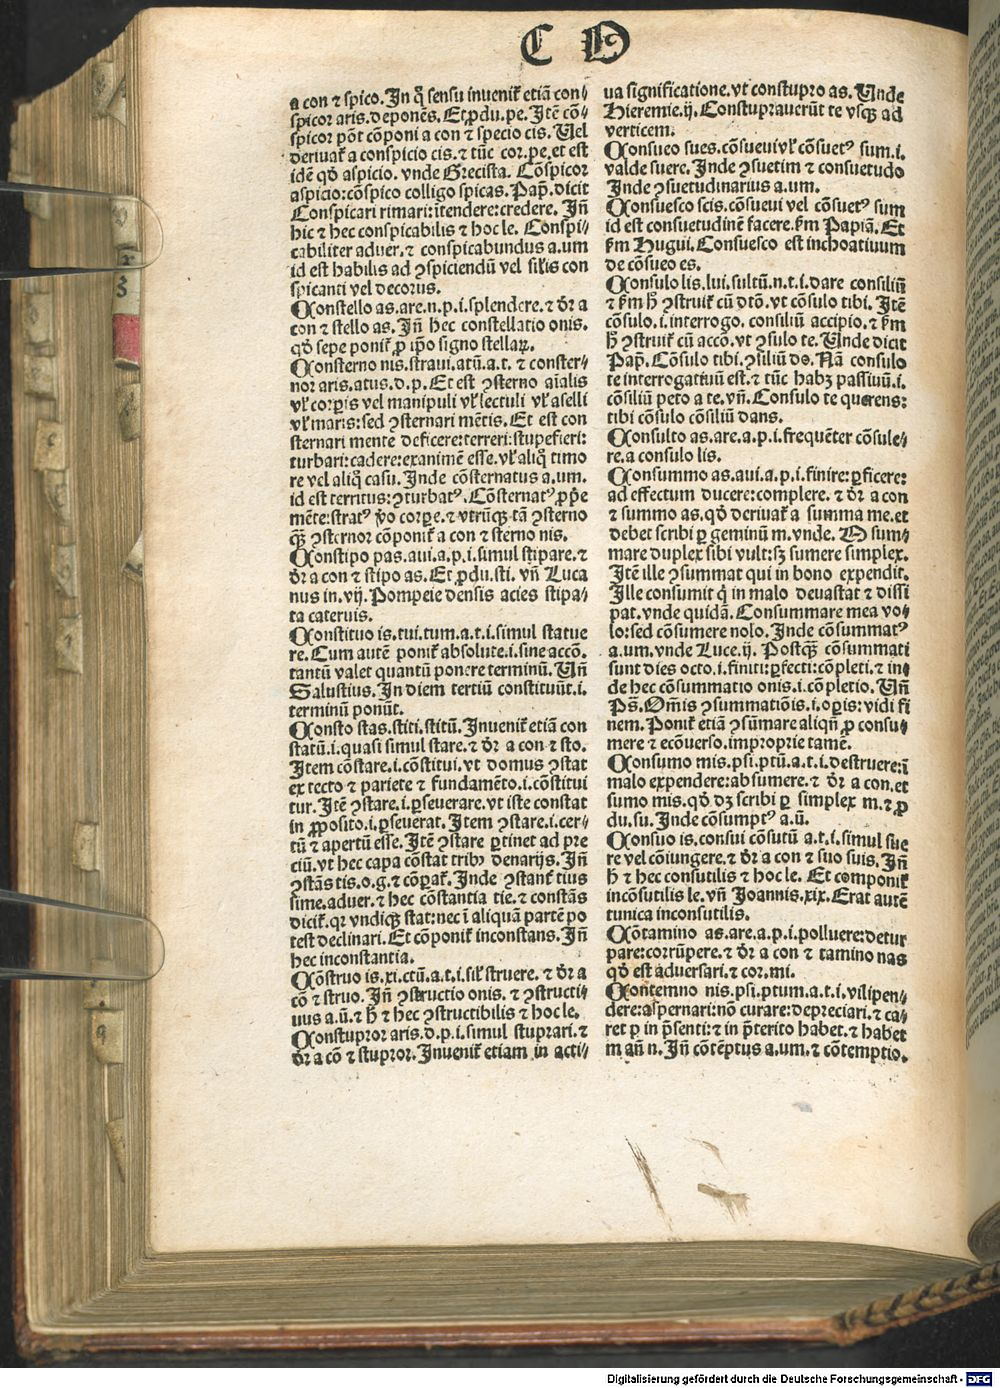 C O
a con ⁊ spico. In q̈ sensu inuenit̃ etiã con⸗
spicor aris. deponẽs. Et ꝓdu. pe. Itẽ cõ⸗
spicor põt cõponi a con ⁊ specio cis. Uel
deriuat̃ a conspicio cis. ⁊ tũc cor. pe. et est
idẽ qd̃ aspicio. vnde Grecista. Cõspicor
aspicio: cõspico colligo spicas. Pap̃. dicit
Conspicari rimari: ĩtendere: credere. Iñ
hic ⁊ hec conspicabilis ⁊ hoc le. Conspi⸗
cabiliter aduer. ⁊ conspicabundus a. um
id est habilis ad ꝯspiciendũ vel sil̃is con
spicanti vel decorus.
Constello as. are. n. p. i. splendere. ⁊ d̃r a
con ⁊ stello as. Iñ hec constellatio onis.
qd̃ sepe ponit̃ ꝓ ip̃o signo stellaꝝ.
Consterno nis. straui. atũ. a. t. ⁊ conster⸗
nor aris. atus. d. p. Et est ꝯsterno aĩalis
vl̃ corꝑis vel manipuli vl̃ lectuli vl̃ aselli
vl̃ maris: sed ꝯsternari mẽtis. Et est con
sternari mente deficere: terreri: stupefieri:
turbari: cadere: exanimẽ esse. vl̃ aliq̃ timo
re vel aliq̃ casu. Inde cõsternatus a. um.
id est territus: ꝯturbatꝰ. Cõsternatꝰ ꝓp̃e
mẽte: stratꝰ ṽo corꝑe. ⁊ vtrũqꝫ tã ꝯsterno
qꝫ̃ ꝯsternor cõponit̃ a con ⁊ sterno nis.
Constipo pas. aui. a. p. i. simul stipare. ⁊
d̃r a con ⁊ stipo as. Et ꝓdu. sti. vñ Luca
nus in. vij. Pompeie densis acies stipa⸗
ta cateruis.
Constituo is. tui. tum. a. t. i. simul statue
re. Cum autẽ ponit̃ absolute. i. sine accõ.
tantũ valet quantũ ponere terminũ. Uñ
Salustius. In diem tertiũ constituũt. i.
terminũ ponũt.
Consto stas. stiti. stitũ. Inuenit̃ etiã con
statũ. i. quasi simul stare. ⁊ d̃r a con ⁊ sto.
Item cõstare. i. cõstitui. vt domus ꝯstat
ex tecto ⁊ pariete ⁊ fundamẽto. i. cõstitui
tur. Itẽ ꝯstare. i. ꝑseuerare. vt iste constat
in ꝓposito. i. ꝑseuerat. Item ꝯstare. i. cer⸗
tũ ⁊ apertũ esse. Itẽ ꝯstare ꝑtinet ad pre
ciũ. vt hec capa cõstat tribꝰ denarijs. Iñ
ꝯstãs tis. o. g. ⁊ cõꝑat̃. Inde ꝯstant̃ tius
sime. aduer. ⁊ hec cõstantia tie. ⁊ constãs
dicit̃. qr vndiqꝫ stat: nec ĩ aliquã partẽ po
test declinari. Et cõponit̃ inconstans. Iñ
hec inconstantia.
Cõstruo is. xi. ctũ. a. t. i. sil̃ struere. ⁊ d̃r a
cõ ⁊ struo. Iñ ꝯstructio onis. ⁊ ꝯstructi⸗
uus a. ũ. ⁊ h̃ ⁊ hec ꝯstructibilis ⁊ hoc le.
Constupror aris. d. p. i. simul stuprari. ⁊
d̃r a cõ ⁊ stupror. Inuenit̃ etiam in acti⸗
ua significatione. vt constupro as. Unde
Hieremie. ij. Constuprauerũt te vsqꝫ ad
verticem.
Consueo sues. cõsueui vl̃ cõsuetꝰ sum. i.
valde suere. Inde ꝯsuetim ⁊ consuetudo
Inde ꝯsuetudinarius a. um.
Consuesco scis. cõsueui vel cõsuetꝰ sum
id est consuetudinẽ facere. ẜm Papiã. Et
ẜm Hugui. Consuesco est inchoatiuum
de cõsueo es.
Consulo lis. lui. sultũ. n. t. i. dare consiliũ
⁊ ẜm h̃ ꝯstruit̃ cũ dtõ. vt cõsulo tibi. Itẽ
cõsulo. i. interrogo. consiliũ accipio. ⁊ ẜm
h̃ ꝯstruit̃ cũ accõ. vt ꝯsulo te. Unde dicit
Pap̃. Cõsulo tibi. ꝯsiliũ do. Nã consulo
te interrogatiuũ est. ⁊ tũc habꝫ passiuũ. i.
cõsiliũ peto a te. vñ. Consulo te querens:
tibi cõsulo cõsiliũ dans.
Consulto as. are. a. p. i. frequẽter cõsule⸗
re. a consulo lis.
Consummo as. aui. a. p. i. finire: ꝑficere:
ad effectum ducere: complere. ⁊ d̃r a con
⁊ summo as. qd̃ deriuat̃ a summa me. et
debet scribi ꝑ geminũ m. vnde. O sum⸗
mare duplex sibi vult: sꝫ sumere simplex.
Itẽ ille ꝯsummat qui in bono expendit.
Ille consumit q̃ in malo deuastat ⁊ dissi
pat. vnde quidã. Consummare mea vo⸗
lo: sed cõsumere nolo. Inde cõsummatꝰ
a. um. vnde Luce. ij. Postqꝫ̃ cõsummati
sunt dies octo. i. finiti: ꝑfecti: cõpleti. ⁊ in⸗
de hec cõsummatio onis. i. cõpletio. Uñ
Pš. Om̃is ꝯsummatiõis. i. oꝑis: vidi fi
nem. Ponit̃ etiã ꝯsũmare aliqñ ꝓ consu⸗
mere ⁊ ecõuerso. improprie tamẽ.
Consumo mis. psi. ptũ. a. t. i. destruere: ĩ
malo expendere: absumere. ⁊ d̃r a con. et
sumo mis. qd̃ dꝫ scribi ꝑ simplex m. ⁊ ꝓ
du. su. Inde cõsumptꝰ a. ũ.
Consuo is. consui cõsutũ a. t. i. simul sue
re vel cõiungere. ⁊ d̃r a con ⁊ suo suis. Iñ
h̃ ⁊ hec consutilis ⁊ hoc le. Et componit̃
incõsutilis le. vñ Joannis. xix. Erat autẽ
tunica inconsutilis.
Cõtamino as. are. a. p. i. polluere: detur
pare: corrũpere. ⁊ d̃r a con ⁊ tamino nas
qd̃ est aduersari. ⁊ cor. mi.
Contemno nis. psi. ptum. a. t. i. vilipen⸗
dere: aspernari: nõ curare: depreciari. ⁊ ca⸗
ret p in p̃senti: ⁊ in p̃terito habet. ⁊ habet
m añ n. Iñ cõtẽptus a. um. ⁊ cõtemptio.
Digitalisierung gefördert durch die Deutsche Forschungsgemeinschaft - DFG